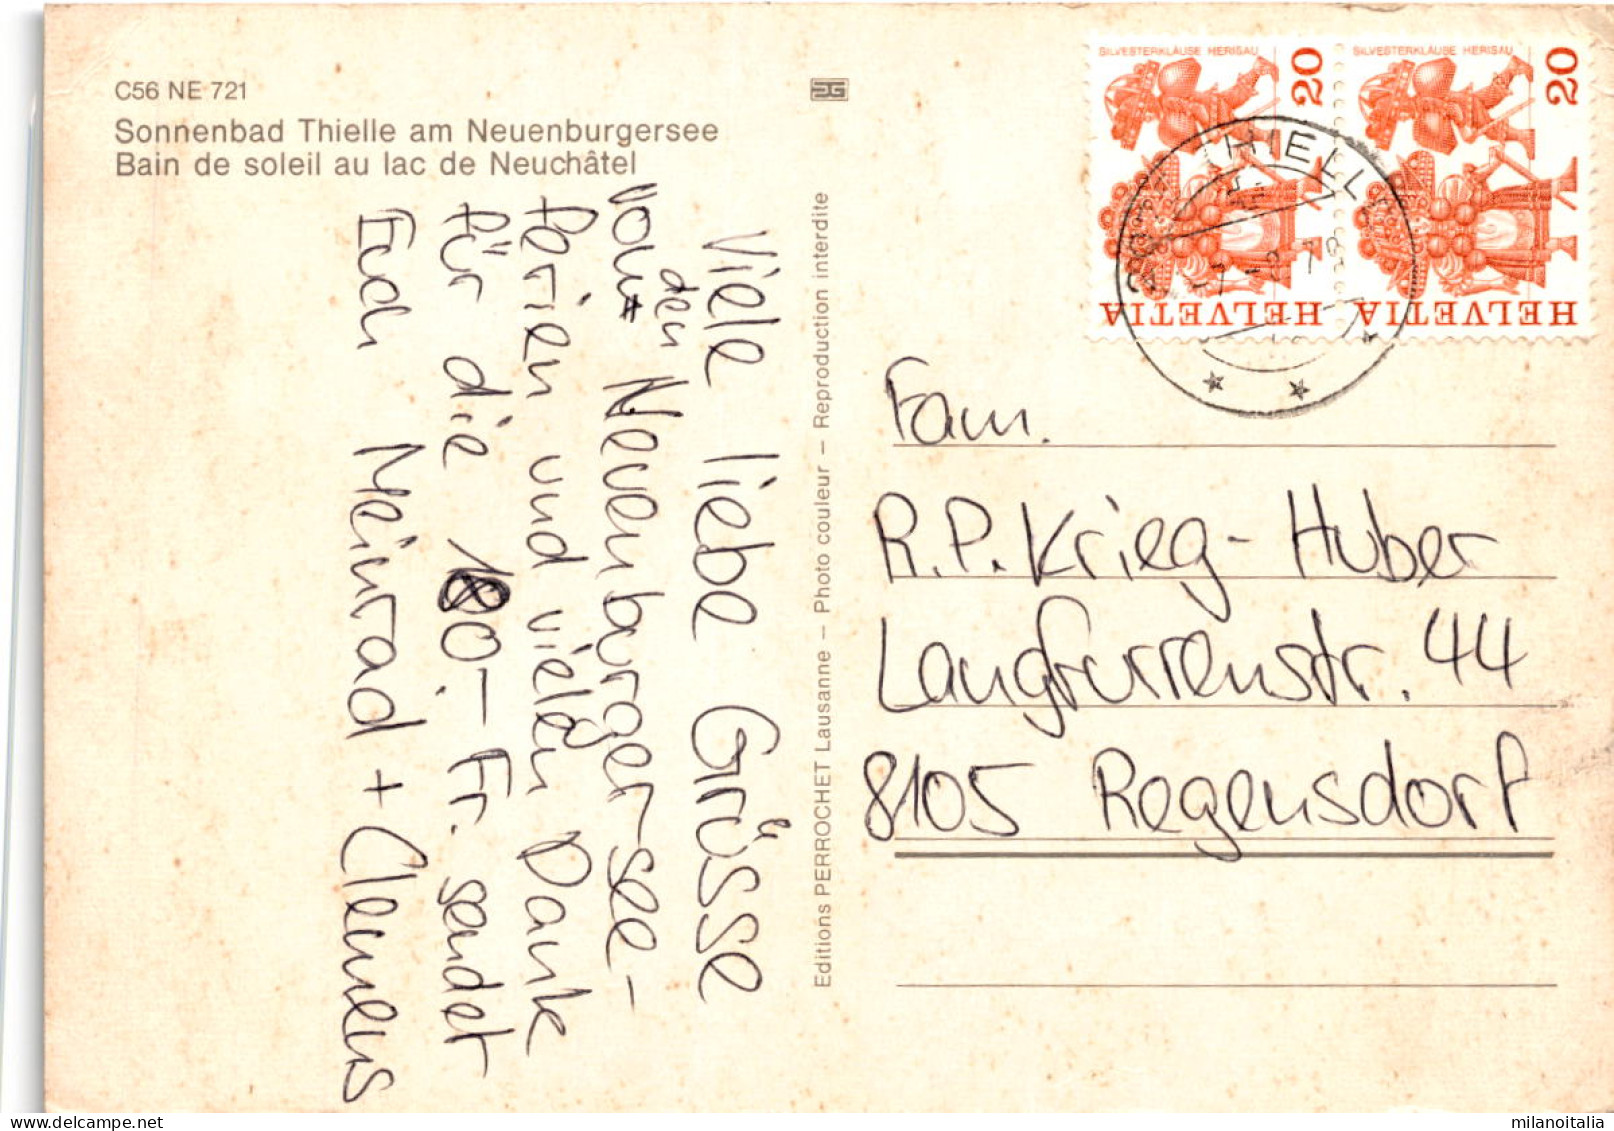 C56 NE 721
Sonnenbad Thielle am Neuenburgersee
Bain de soleil au lac de Neuchâtel
Viele liebe Grüsse
von den Neuenburger-see-
ferien und vielen Dank
für die 180.- Fr. sendet
Euch Meinrad + Clemens
Editions PERROCHET Lausanne – Photo couleur – Reproduction interdite
SILVESTERKLÄUSE HERISAU
20
HELVETIA
SILVESTERKLÄUSE HERISAU
20
HELVETIA
THIELLE
Fam.
R.P. Krieg-Huber
Langfurrenstr. 44
8105 Regensdorf
milanoitalia